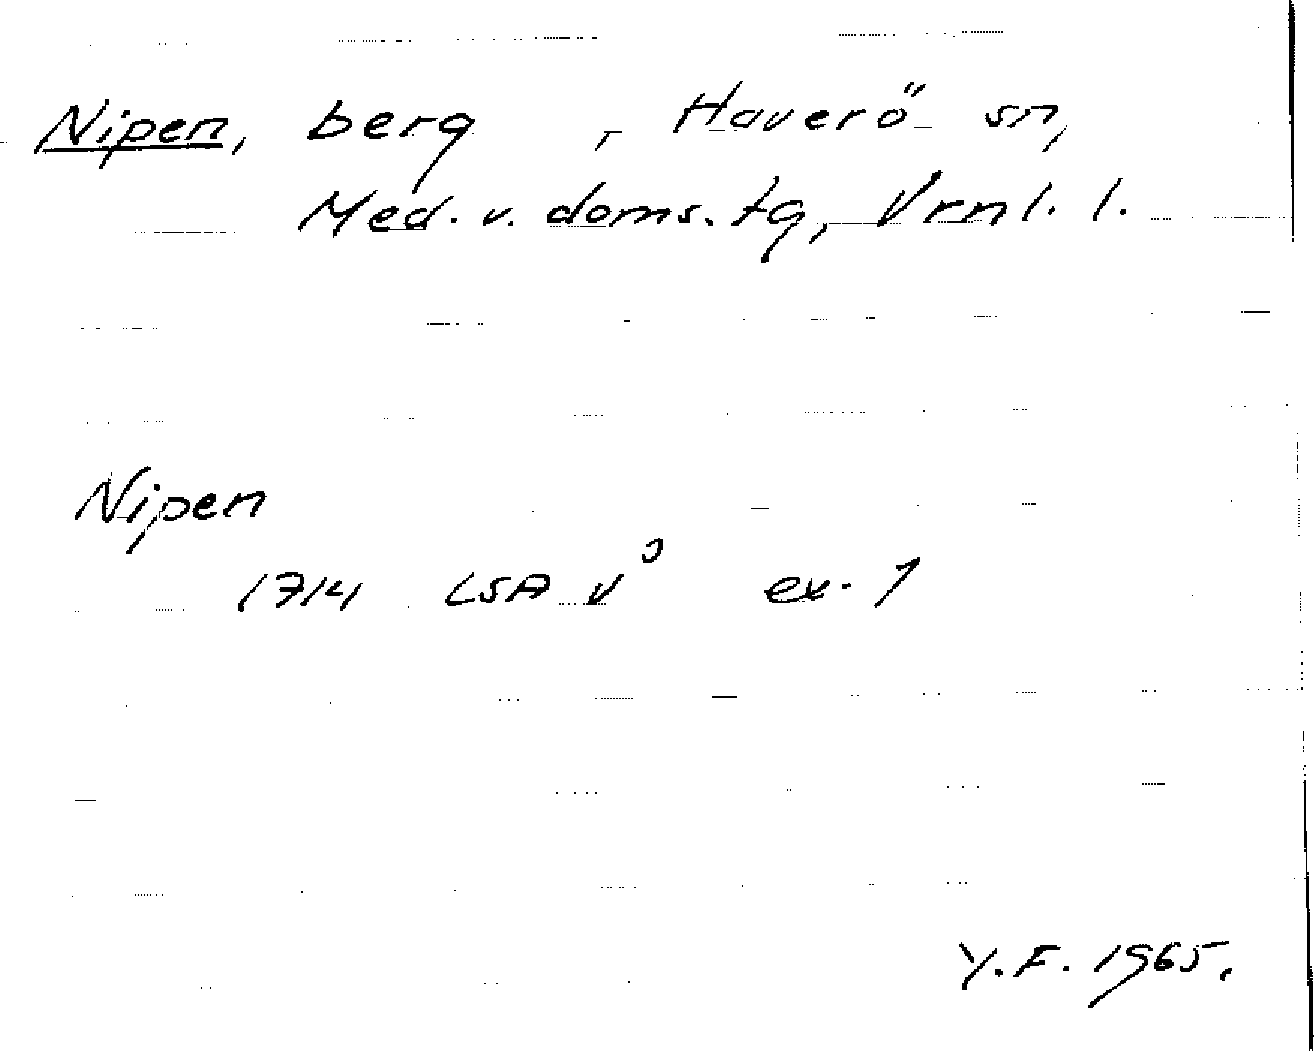 Nipen, berg , Haverö sn,
Med. v. doms. tg, Vrnl. l.
Nipen
1714 LSA v⁰ ex. 1
Y.F. 1965.